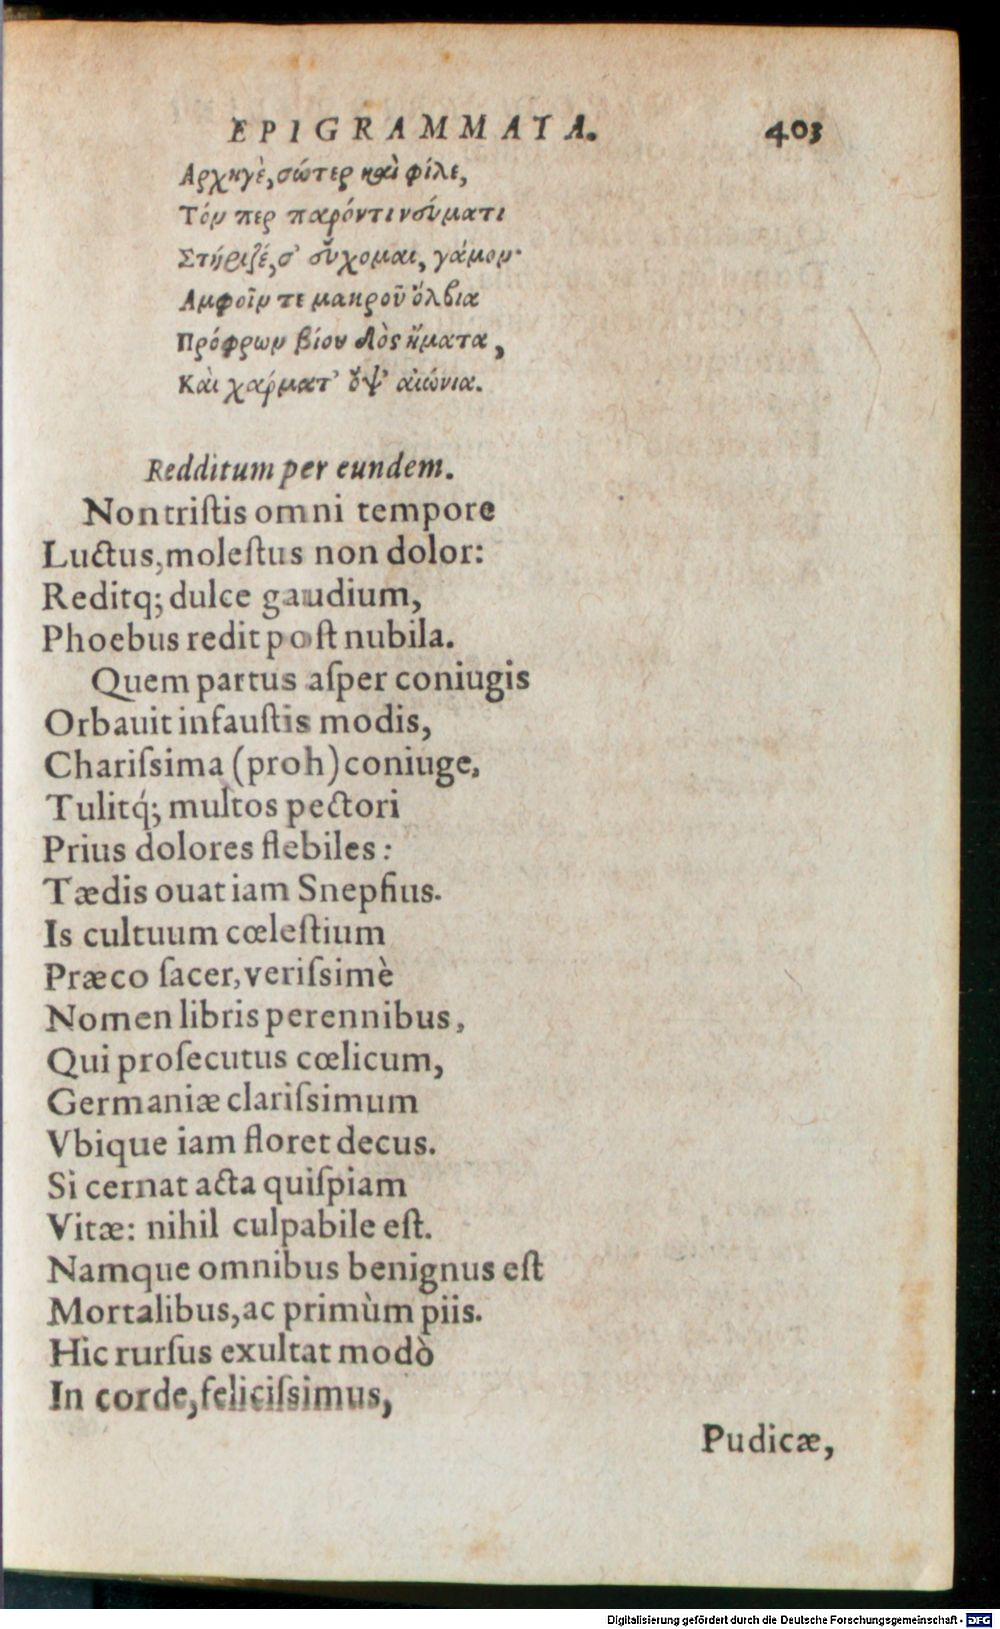 EPIGRAMMATA. 403
Αρχηγὲ, σώτερ καὶ φίλε,
Τόν περ παρόντι νεύματι
Στήριζέ, σ' εὔχομαι, γάμον·
Αμφοῖν τε μακροῦ ὄλβια
Πρόφρων βίου δὸς ἤματα,
Καὶ χάρματ' ὄψ' αἰώνια.
Redditum per eundem.
Non triſtis omni tempore
Luctus, moleſtus non dolor:
Reditq; dulce gaudium,
Phoebus redit poſt nubila.
Quem partus aſper coniugis
Orbauit infauſtis modis,
Chariſsima (proh) coniuge,
Tulitq́; multos pectori
Prius dolores flebiles:
Tædis ouat iam Snepfius.
Is cultuum cœleſtium
Præco ſacer, veriſsimè
Nomen libris perennibus,
Qui proſecutus cœlicum,
Germaniæ clariſsimum
Vbique iam floret decus.
Si cernat acta quiſpiam
Vitæ: nihil culpabile eſt.
Namque omnibus benignus eſt
Mortalibus, ac primùm piis.
Hic rurſus exultat modò
In corde, feliciſsimus,
Pudicæ,
Digitalisierung gefördert durch die Deutsche Forschungsgemeinschaft - DFG